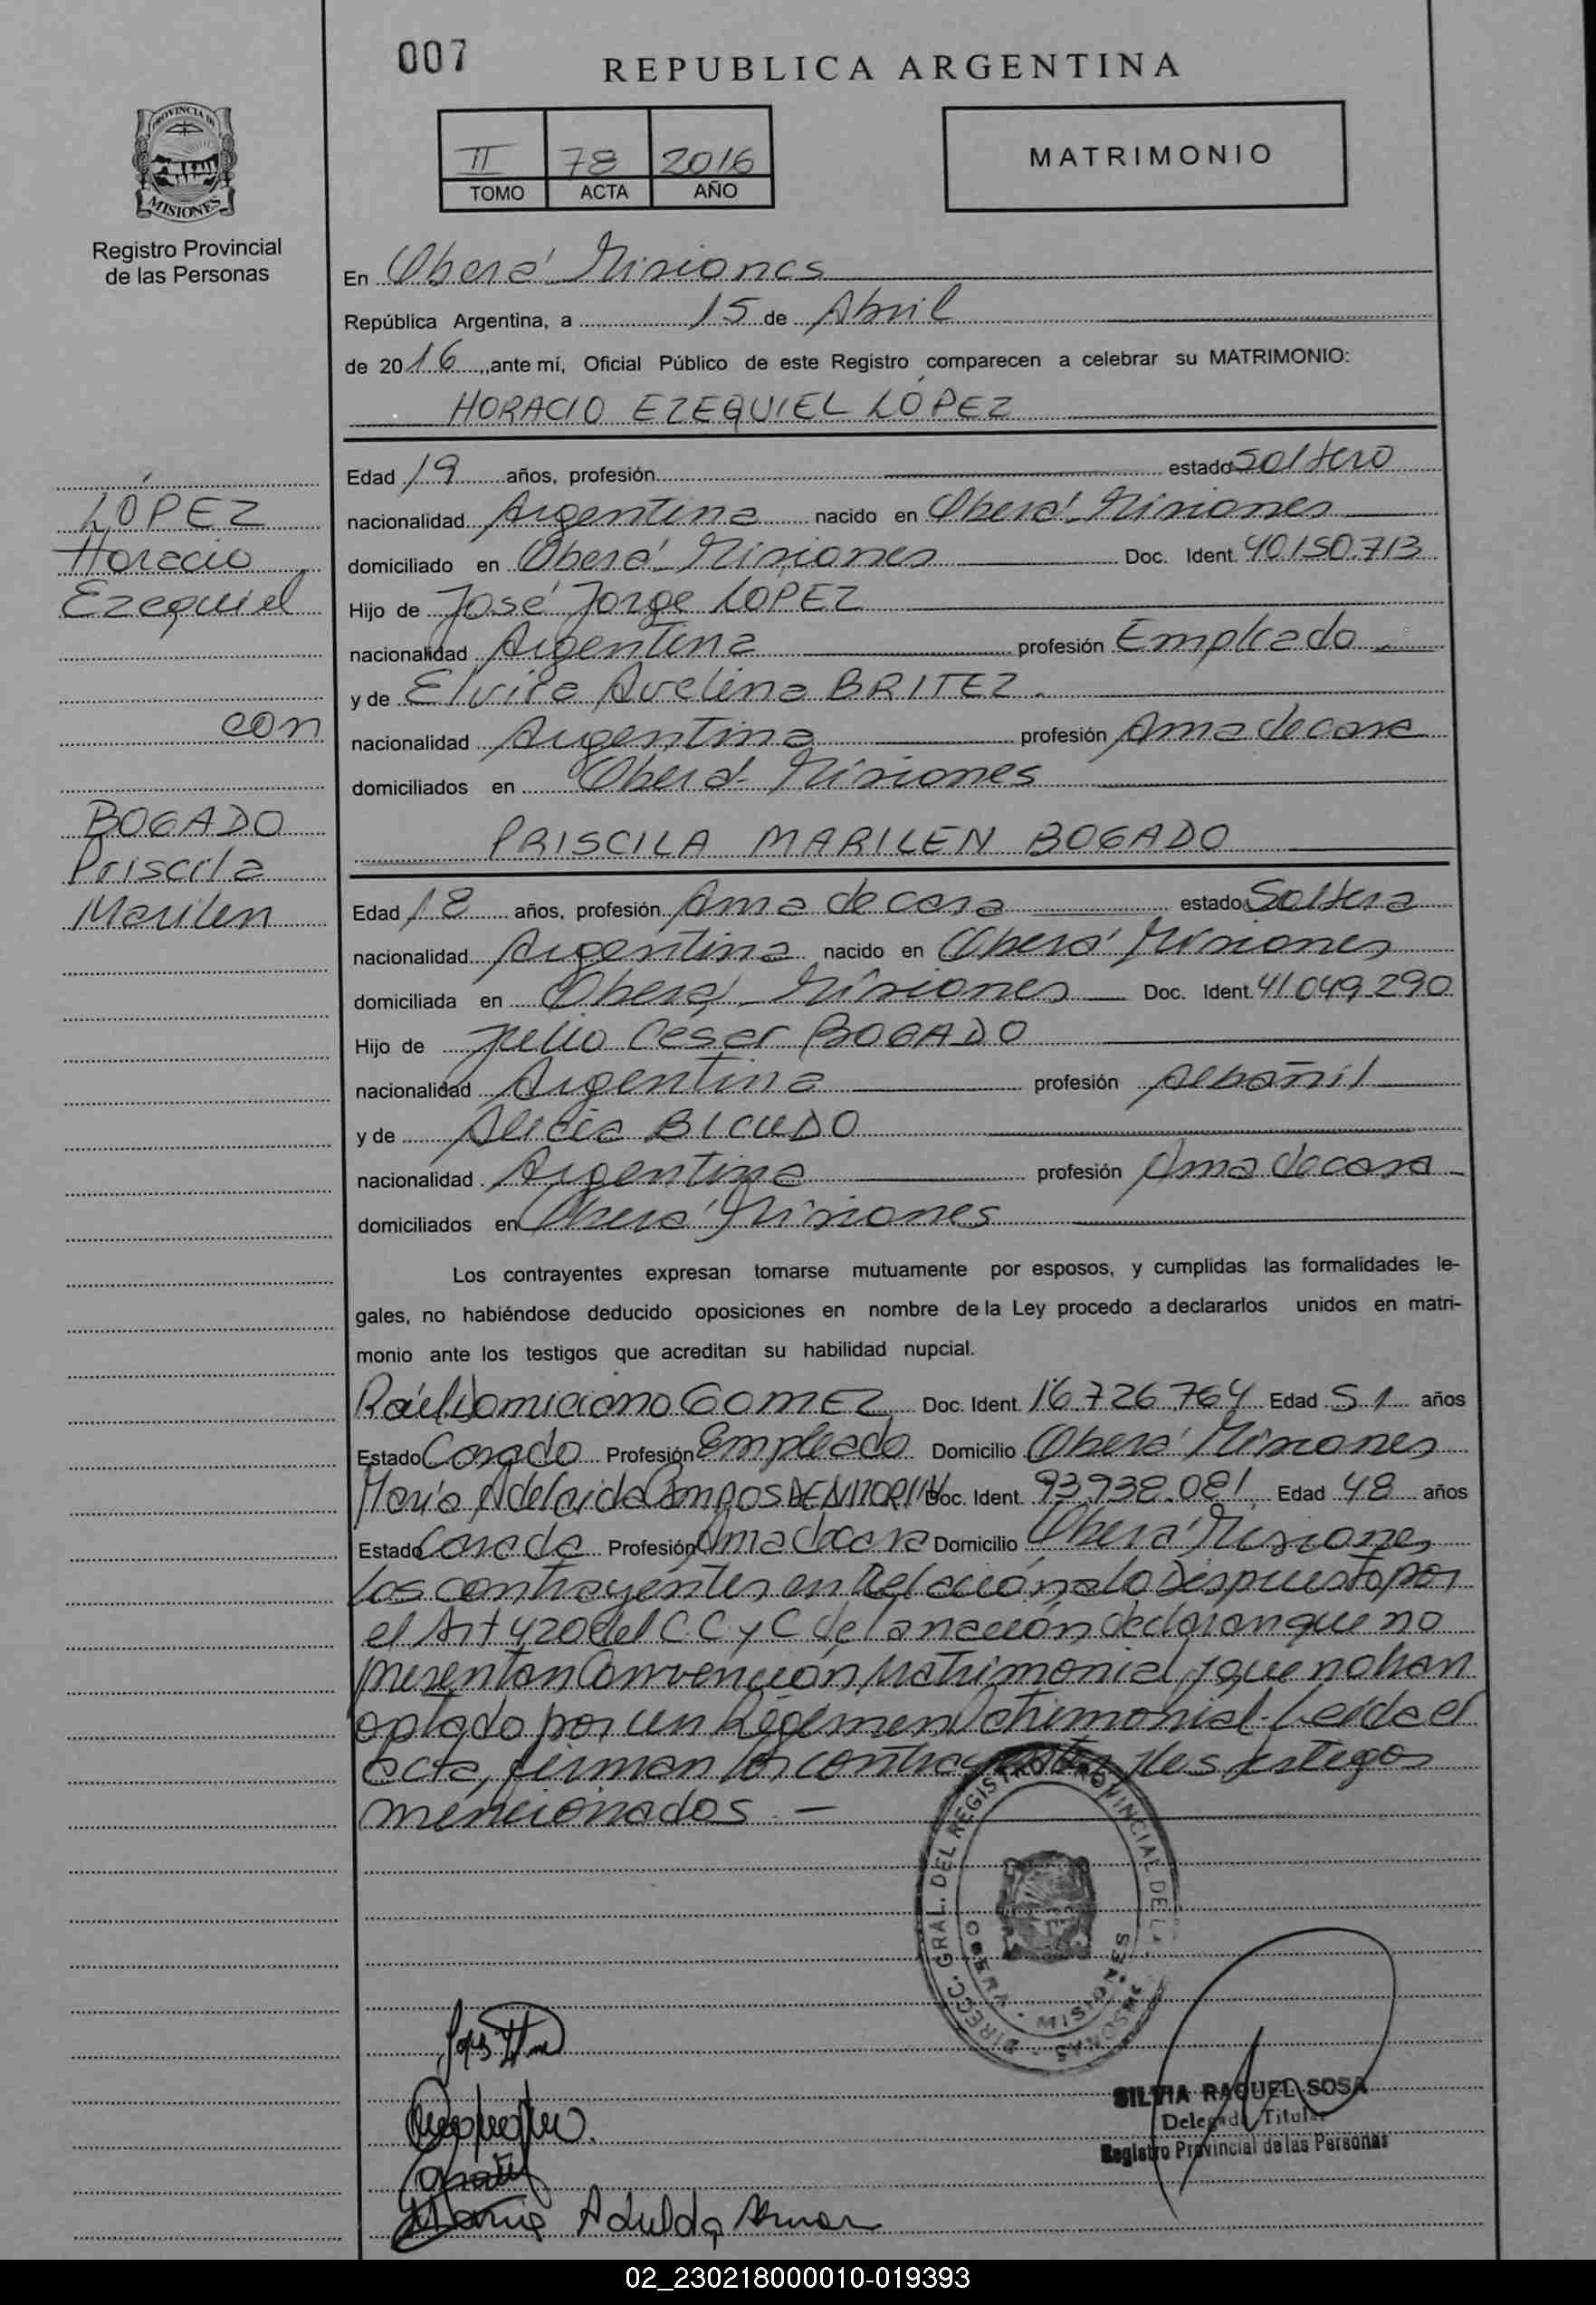 007
REPUBLICA ARGENTINA
II 78 2016
TOMO ACTA AÑO
MATRIMONIO
PROVINCIA DE
MISIONES
Registro Provincial
de las Personas
En Oberá Misiones
República Argentina, a 15 de Abril
de 2016, ante mí, Oficial Público de este Registro comparecen a celebrar su MATRIMONIO:
HORACIO EZEQUIEL LÓPEZ
LÓPEZ
Horacio
Ezequiel
con
BOGADO
Priscila
Marilen
Edad 19 años, profesión estado Soltero
nacionalidad Argentina nacido en Oberá-Misiones
domiciliado en Oberá-Misiones Doc. Ident. 40.150.713
Hijo de José Jorge LOPEZ
nacionalidad Argentina profesión Empleado
y de Elvira Avelina BRITEZ.
nacionalidad Argentina profesión Ama de casa
domiciliados en Oberá-Misiones
PRISCILA MARILEN BOGADO
Edad 18 años, profesión Ama de casa estado Soltera
nacionalidad Argentina nacido en Oberá Misiones
domiciliada en Oberá-Misiones Doc. Ident. 41.049.290
Hijo de Julio César BOGADO
nacionalidad Argentina profesión Albañil
y de Alicia BICUDO
nacionalidad Argentina profesión Ama de casa
domiciliados en Oberá Misiones
Los contrayentes expresan tomarse mutuamente por esposos, y cumplidas las formalidades le-
gales, no habiéndose deducido oposiciones en nombre de la Ley procedo a declararlos unidos en matri-
monio ante los testigos que acreditan su habilidad nupcial.
Raúl Domiciano GOMEZ Doc. Ident. 16.726.764 Edad 51 años
Estado Casado Profesión Empleado Domicilio Oberá Misiones
María Adelaida Doc. Ident. 93.938.081 Edad 48 años
Estado Casada Profesión Ama de casa Domicilio Oberá Misiones
Los contrayentes en Relación a lo Dispuesto por
el Art 420 del C.C y C de la nación, declaran que no
presentan Convención Matrimonial, y que no han
optado por un Régimen Patrimonial. Leida el
acta, firman los contrayentes y los testigos
mencionados. —
DIRECC. GRAL. DEL REGISTRO PROVINCIAL DE LAS PERSONAS
OBERA - MISIONES
SILVIA RAQUEL SOSA
Delegada Titular
Registro Provincial de las Personas
02_230218000010-019393